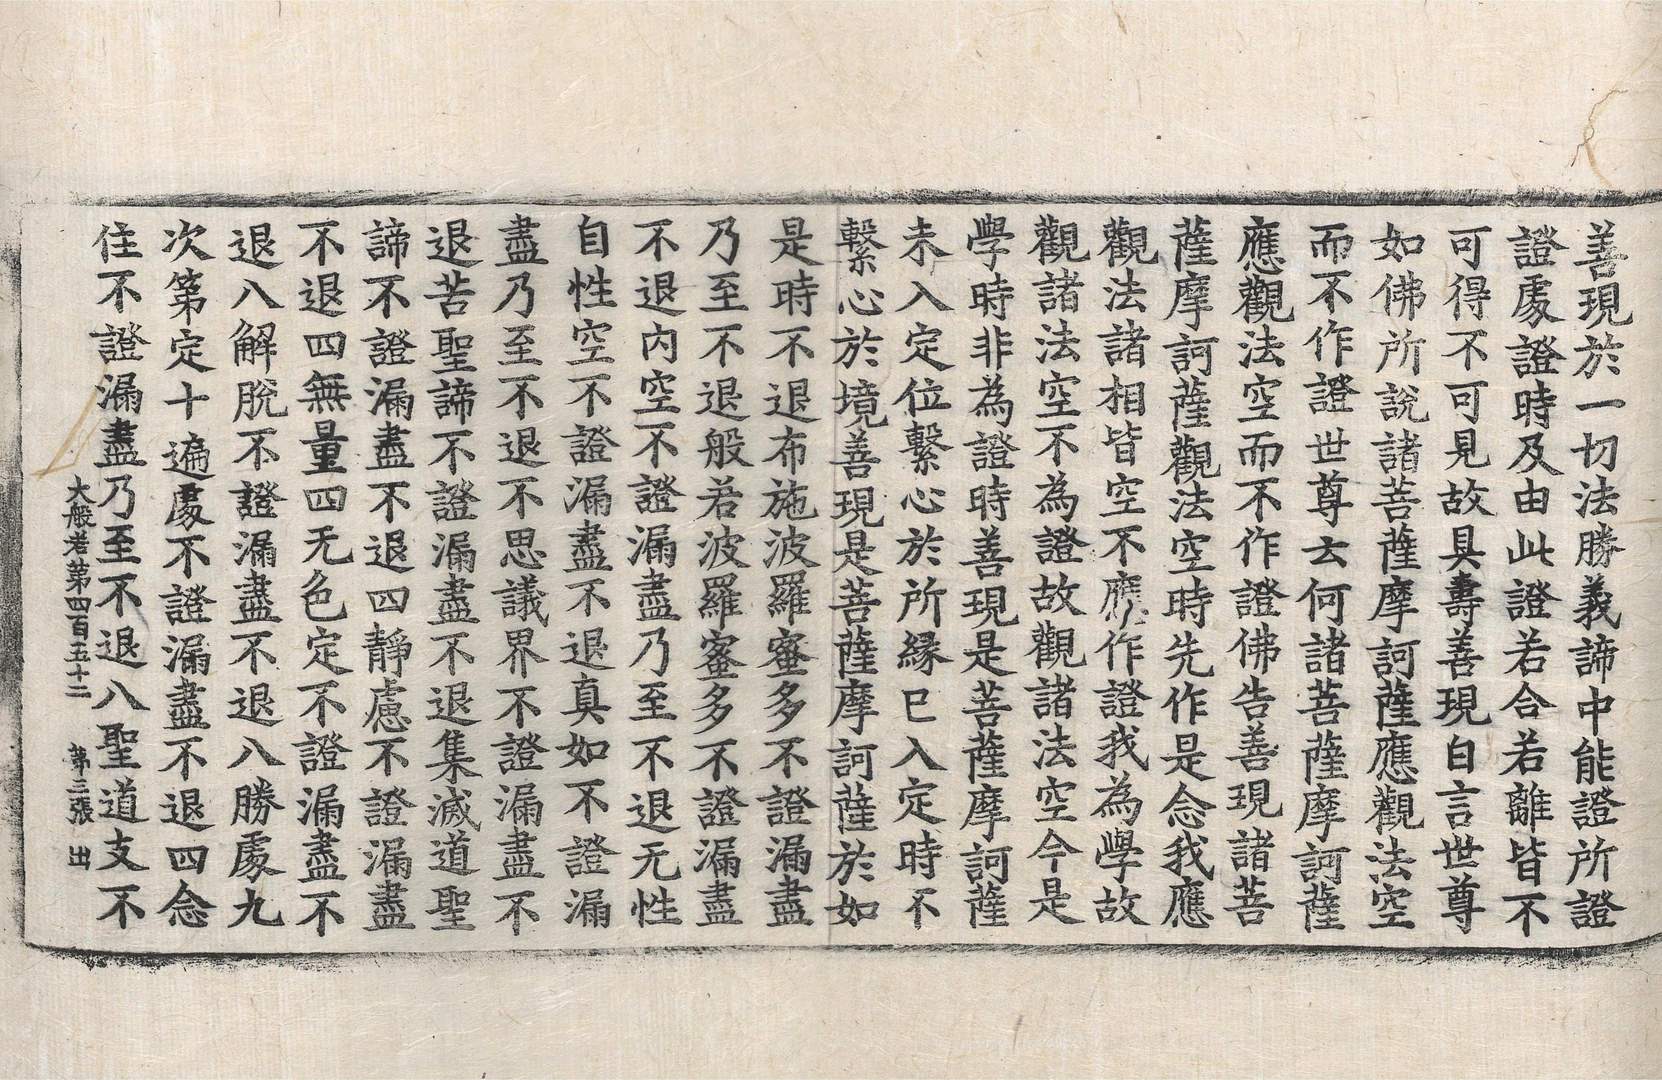 善現於一切法勝義諦中能證所證
證處證時及由此證若合若離皆不
可得不可見故具壽善現白言世尊
如佛所說諸菩薩摩訶薩應觀法空
而不作證世尊云何諸菩薩摩訶薩
應觀法空而不作證佛告善現諸菩
薩摩訶薩觀法空時先作是念我應
觀法諸相皆空不應作證我為學故
觀諸法空不為證故觀諸法空今是
學時非為證時善現是菩薩摩訶薩
未入定位繫心於所緣已入定時不
繫心於境善現是菩薩摩訶薩於如
是時不退布施波羅蜜多不證漏盡
乃至不退般若波羅蜜多不證漏盡
不退內空不證漏盡乃至不退无性
自性空不證漏盡不退真如不證漏
盡乃至不退不思議界不證漏盡不
退苦聖諦不證漏盡不退集滅道聖
諦不證漏盡不退四靜慮不證漏盡
不退四無量四无色定不證漏盡不
退八解脫不證漏盡不退八勝處九
次第定十遍處不證漏盡不退四念
住不證漏盡乃至不退八聖道支不
大般若第四百五十二 第三張 出